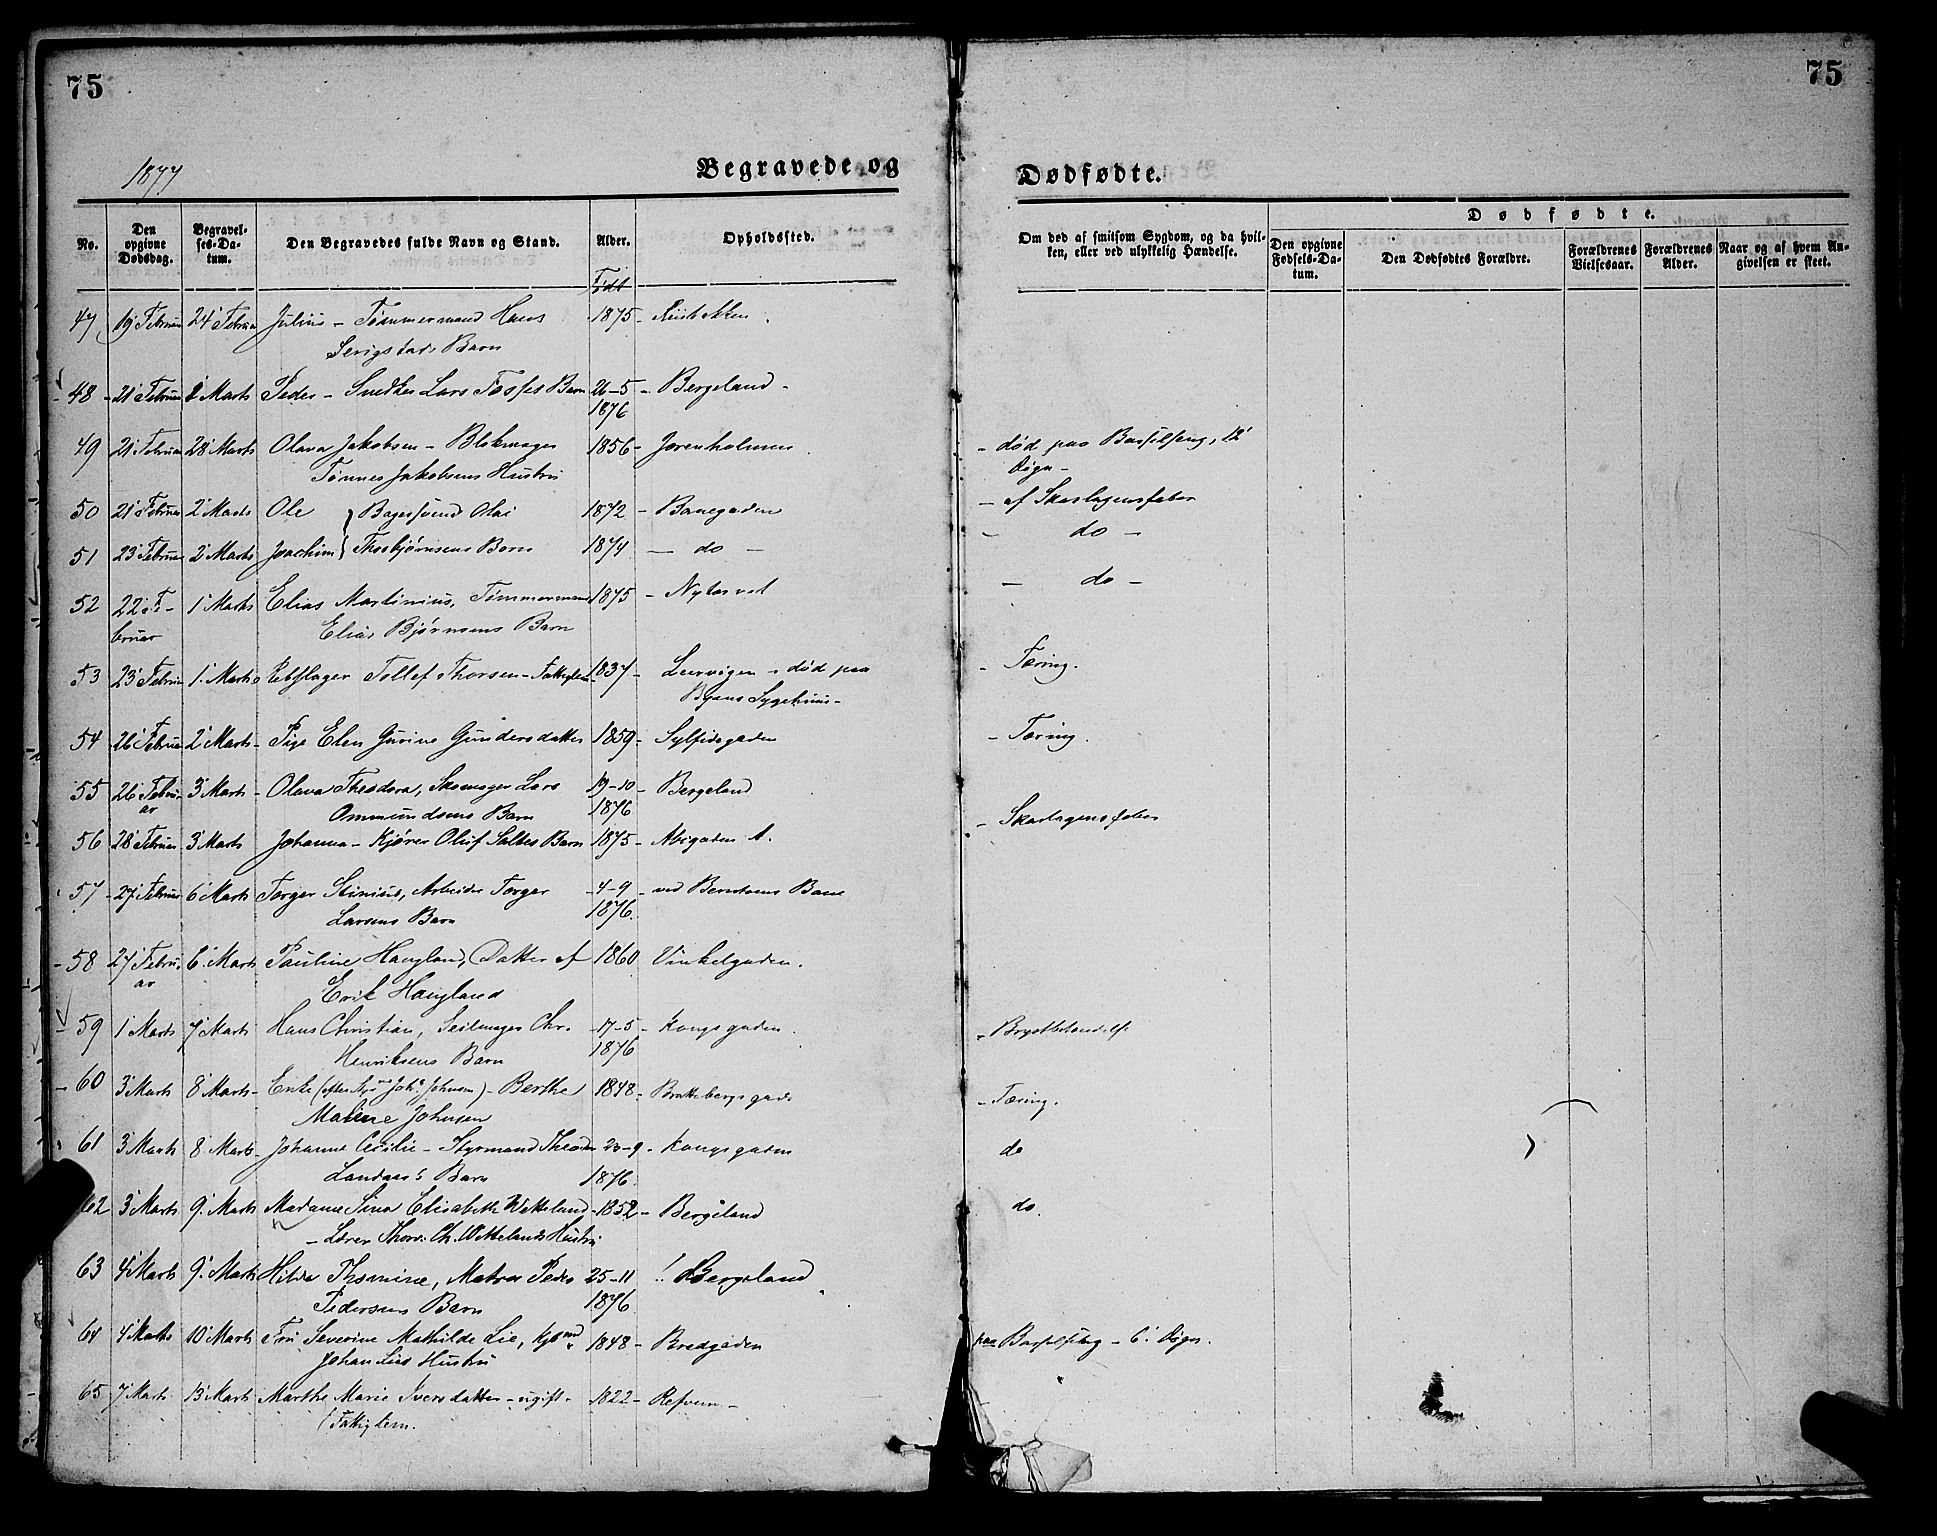 75
75
1877
Begravede og
Dødfødte.
No.
Den opgivne Dødsdag.
Begravelses-Datum.
Den Begravedes fulde Navn og Stand.
Alder.
Opholdssted.
Om død af smitsom Sygdom, og da hvilken, eller ved ulykkelig Hændelse.
Dødfødte.
Den opgivne Fødsels-Datum.
Den Dødfødtes Forældre.
Forældrenes Vielsesaar.
Forældrenes Alder.
Naar og af hvem Angivelsen er skeet.
Født
47 19 Februar 24 Februar Julius – Tømmermand Hans 1875 –
Serigstads Barn
48 21 Februar Marts Peder – Snedker Lars Tosses Barn 26–5 – Bergeland –
1876
49 21 Februar 28 Marts Olava Jakobsen – Blokmager 1856 – Jorenholmen – død paa Barselseng, 12
Tønnes Jakobsens Hustru Døgn –
50 21 Februar 2 Marts Ole } Bagersvend Olai 1872 – Banegaden – af Skarlagensfeber
51 23 Februar 2 Marts Joachim } Thorbjørnsens Børn 1874 — do — – do –
52 22 Fe- 1 Marts Elias Martinius, Tømmermand 1875 – Nytorvet — do –
bruar Elias Bjørnsens Barn
53 23 Februar 1 Marts Rebslager Tollef Thorsen – Fattiglem 1837 – Lervigen – død paa – Tæring.
Byens Sygehuus –
54 26 Februar 2 Marts – Pige Elen Gurine Gundersdatter 1859 – Sylfidegaden – Tæring.
55 26 Febru- 3 Marts – Olava Theodora, Skomager Lars 19–10 – Bergeland
ar Ommundsens Barn 1876
56 28 Februar 3 Marts Johanna – Kjører Oluf Saltes Barn 1875 – Abigaden A. – Skarlagensfeber
57 – 27 Februar 6 Marts Torger Stinius, Arbeider Torger 4–9 – ved Berntsens Bane
Larsens Barn 1876.
58 27 Febru- 6 Marts Pauline Haugland, Datter af 1860 Vinkelgaden.
ar Erik Haugland
59 1 Marts 7 Marts Hans Christian, Seilmager Chr. 17–5 – Kongsgaden.
Henriksens Barn 1876
60 3 Marts 8 Marts – Enke (efter Joh. Johnsen) – Berthe 1848 – Brattebergsgade – Tæring.
Malene Johnsen
61 3 Marts 8 Marts – Johanne Cecilie – Styrmand Theodor 23–9 – Kongsgaden do
Landaas's Barn 1876.
62 3 Marts 9 Marts Madame Sina Elisabeth Wetteland 1852 – Bergeland do.
– Lærer Thorv. Ch. Wettelands Hustru
63 4 Marts 9 Marts Hilda Thomine, Matros Peder 25–11 Bergeland
Pedersens Barn 1876.
64 4 Marts 10 Marts Fru Severine Mathilde Lie, Kjbmd. 1848 – Bredgaden paa Barselseng – 6 Døgn.
Johan Lies Hustru
65 7 Marts 13 Marts Marthe Marie Iversdatter – ugift – 1822 – Refven –
Fattiglem.